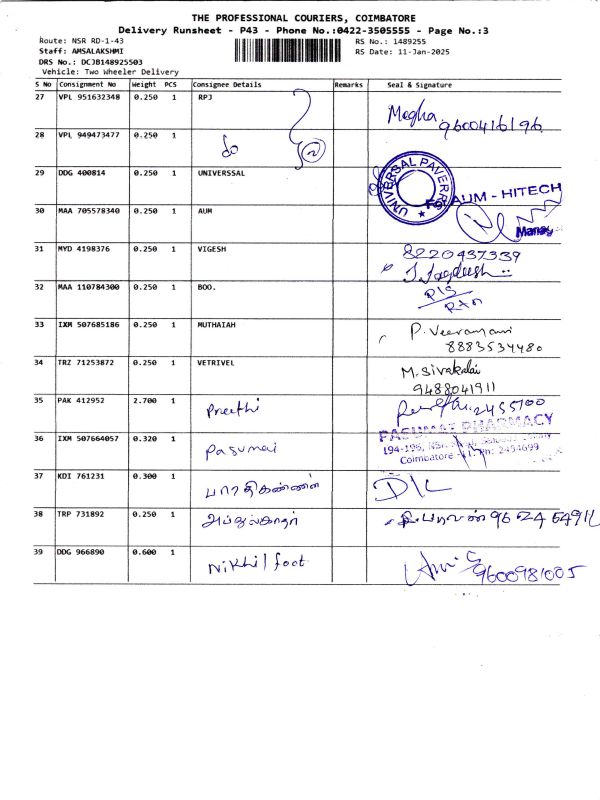 THE PROFESSIONAL COURIERS, COIMBATORE
Delivery Runsheet - P43 - Phone No.:0422-3505555 - Page No.:3
Route: NSR RD-1-43 RS No.: 1489255
Staff: AMSALAKSHMI RS Date: 11-Jan-2025
DRS No.: DCJB148925503
Vehicle: Two Wheeler Delivery
S No Consignment No Weight PCS Consignee Details Remarks Seal & Signature
27 VPL 951632348 0.250 1 RPJ Megha 9600416196
28 VPL 949473477 0.250 1 do 2
29 DDG 400814 0.250 1 UNIVERSSAL UNIVERSAL PAVERRS
30 MAA 705578340 0.250 1 AUM AUM - HITECH
31 MYD 4198376 0.250 1 VIGESH 8220437339
32 MAA 110784300 0.250 1 BOO.
33 IXM 507685186 0.250 1 MUTHAIAH P. Veeramani 8883534480
34 TRZ 71253872 0.250 1 VETRIVEL M. Sivakalai 9488041911
35 PAK 412952 2.700 1 Preethi
36 IXM 507664057 0.320 1 Pasumai PASUMAI PHARMACY
Coimbatore
2454699
37 KDI 761231 0.300 1 பாரதிகண்ணன் D/L
38 TRP 731892 0.250 1 அப்துல்காதர்
39 DDG 966890 0.600 1 Nikhil foot 9600981005